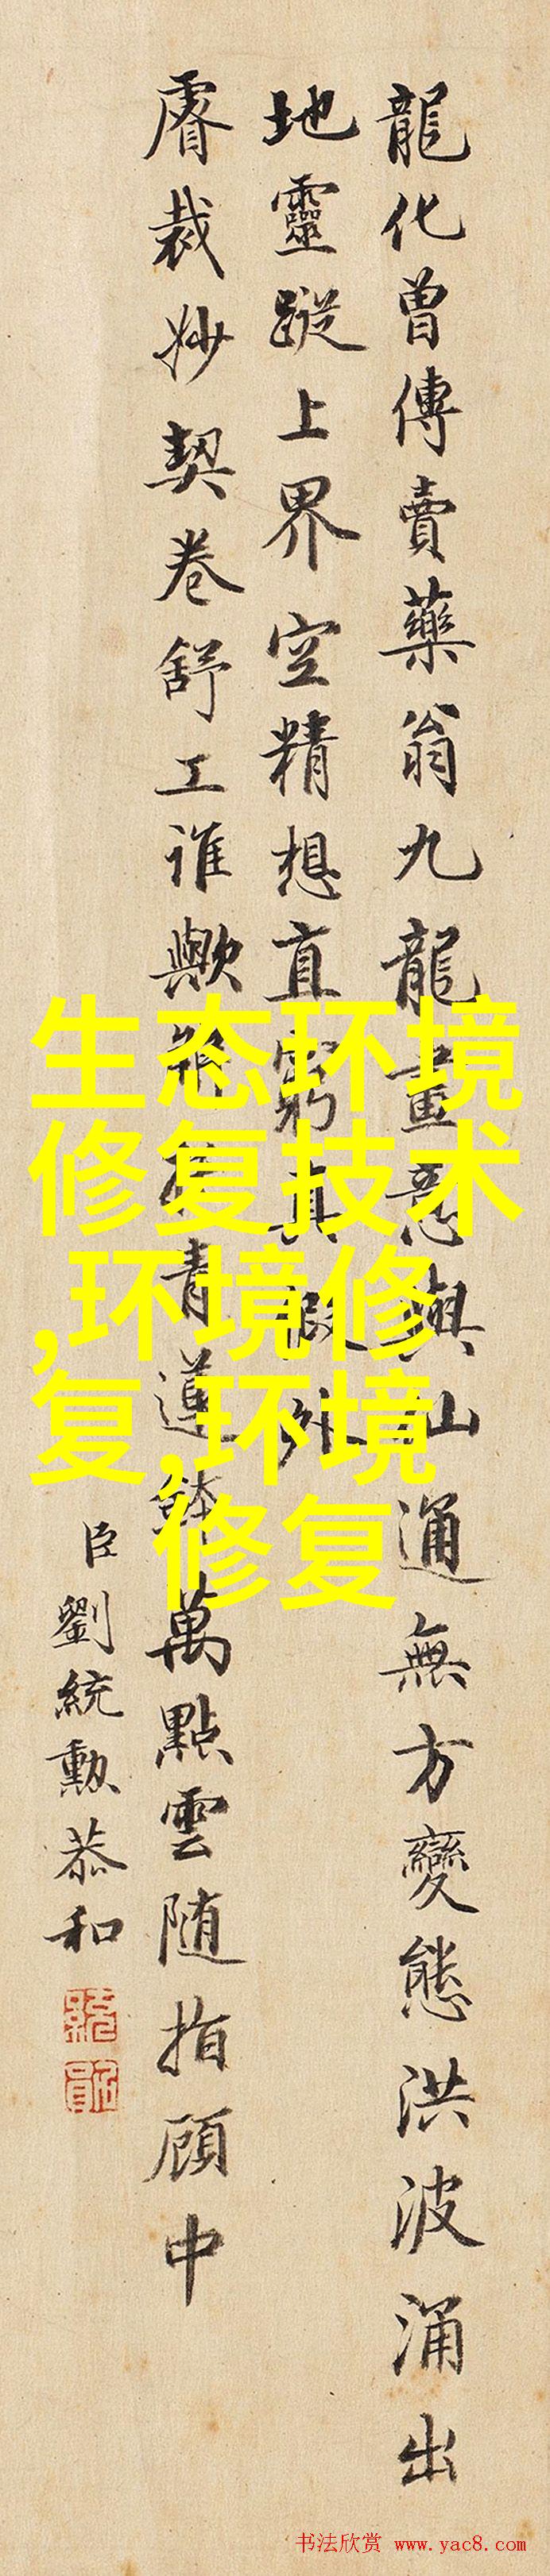 龍化曾傳賣藥翁九龍畫意與仙通無方變態洪波涌出
地靈蹤上界空精想直窮真假外
睿裁妙契卷舒工誰歟青蓮鉢萬點雲隨指顧中
臣劉統勳恭和
生态环境
修复技术
,环境修
复,环境
修复
书法欣赏 www.yac8.com